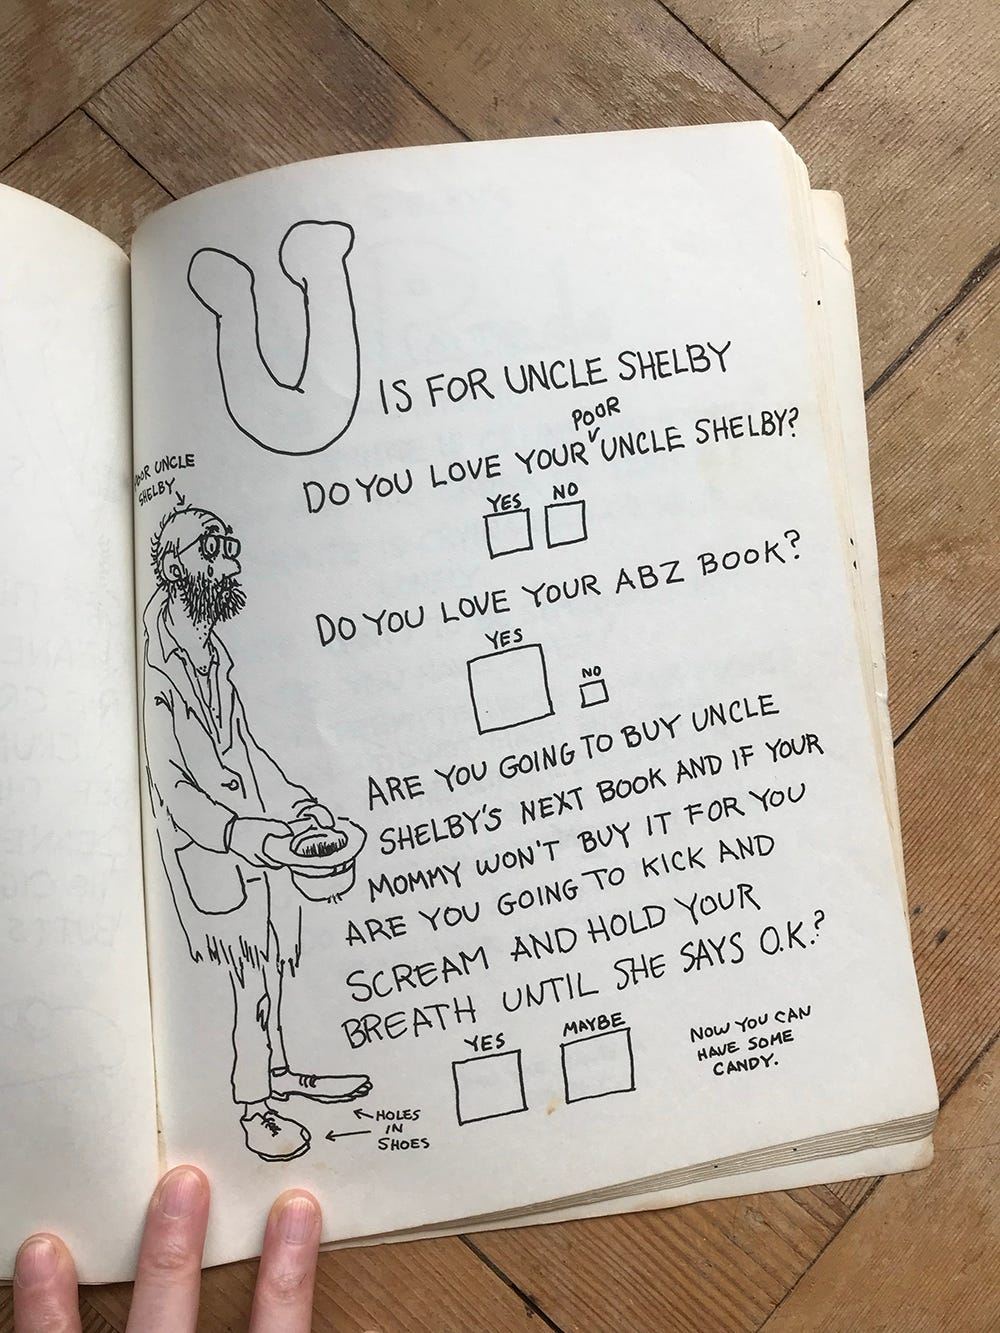 U IS FOR UNCLE SHELBY
POOR
DO YOU LOVE YOUR UNCLE SHELBY?
YES NO
UNCLE
SHELBY
DO YOU LOVE YOUR ABZ BOOK?
YES
NO
ARE YOU GOING TO BUY UNCLE
SHELBY'S NEXT BOOK AND IF YOUR
MOMMY WON'T BUY IT FOR YOU
ARE YOU GOING TO KICK AND
SCREAM AND HOLD YOUR
BREATH UNTIL SHE SAYS O.K.?
YES MAYBE
NOW YOU CAN
HAVE SOME
CANDY.
HOLES
IN
SHOES